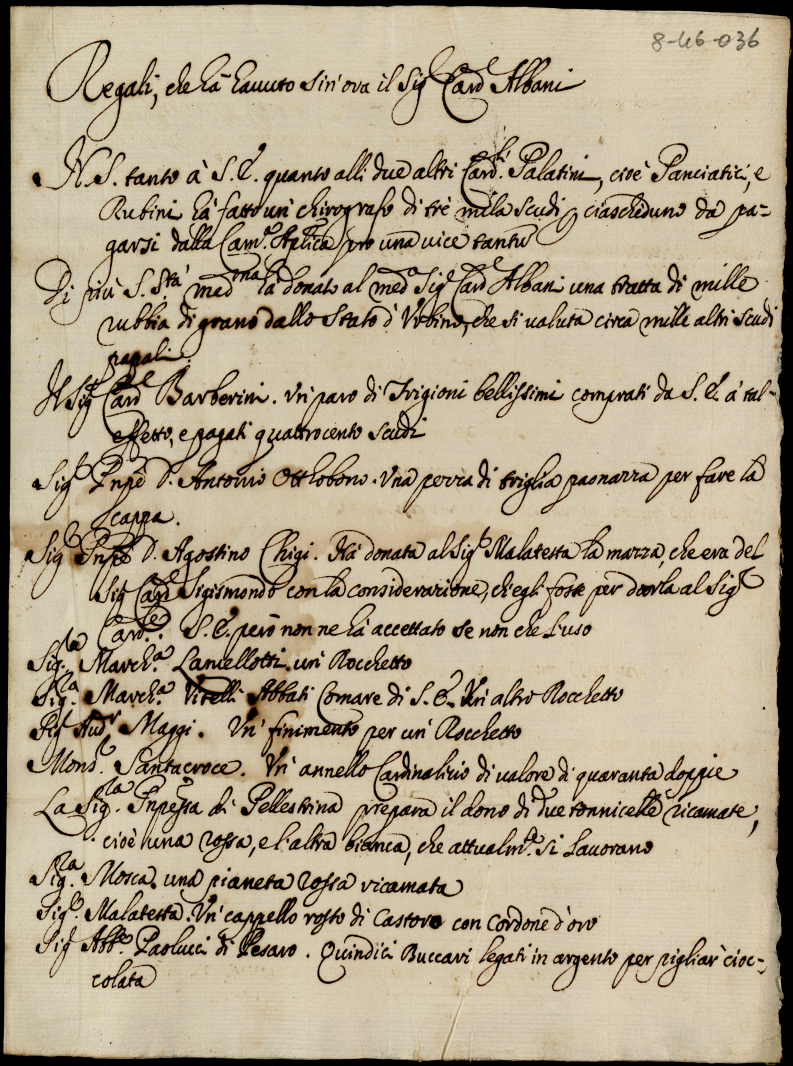 8-46-036
Regali, che hà havuto sin'ora il Sig.r Card.l Albani
N.S. tanto à S.E. quanto alli due altri Card.li Palatini, cioè Panciatici, e
Rubini hà fatto un' chirografo di trè mila scudi p ciascheduno da pa=
garsi dalla Cam.a Aplica pro una vice tantu
Di più S. Stà med.ma hà donato al med.o Sig.r Card.l Albani una tratta di mille
rubbia di grano dallo Stato d'Urbino, che si valuta circa mille altri scudi
papali.
Il Sig.r Card.l Barberini. Un paro di Frigioni bellissimi comprati da S.E. à tal=
effetto, e pagati quattrocento scudi
Sig.r Pnpe D. Antonio Otthobono. Una pezza di triglia paonazza per fare la
Cappa.
Sig.r Pnpe D. Agostino Chigi. Hà donata al Sig.r Malatesta la mazza, che era del
Sig.r Card.l Sigismondo con la considerazione, ch'egli fosse per darla al Sig.r
Card.le. S.E. però non ne hà accettato se non che l'uso
Sig.ra March.a Lancellotti. un' Rocchetto
Sig.ra March.a Vitelli Abbati Comare di S.E. Un' altro Rocchetto
Sig.r Aud.r Maggi. Un' finimento per un' Rocchetto
Mons.r Santacroce. Un' annello Cardinalizio di valore di quaranta doppie
La Sig.ra Pnpessa di Pellestrina prepara il dono di due tonnicelle ricamate,
cioè una rossa, e l'altra bianca, che attualm.te si lavorano
Sig.ra Mosca. una pianeta rossa ricamata
Sig.r Malatesta. Un' cappello rosso di Castoro con cordone d'oro
Sig.r Abb.e Paolucci di Pesaro. Quindici Buccari legati in argento per pigliar cioc=
colata